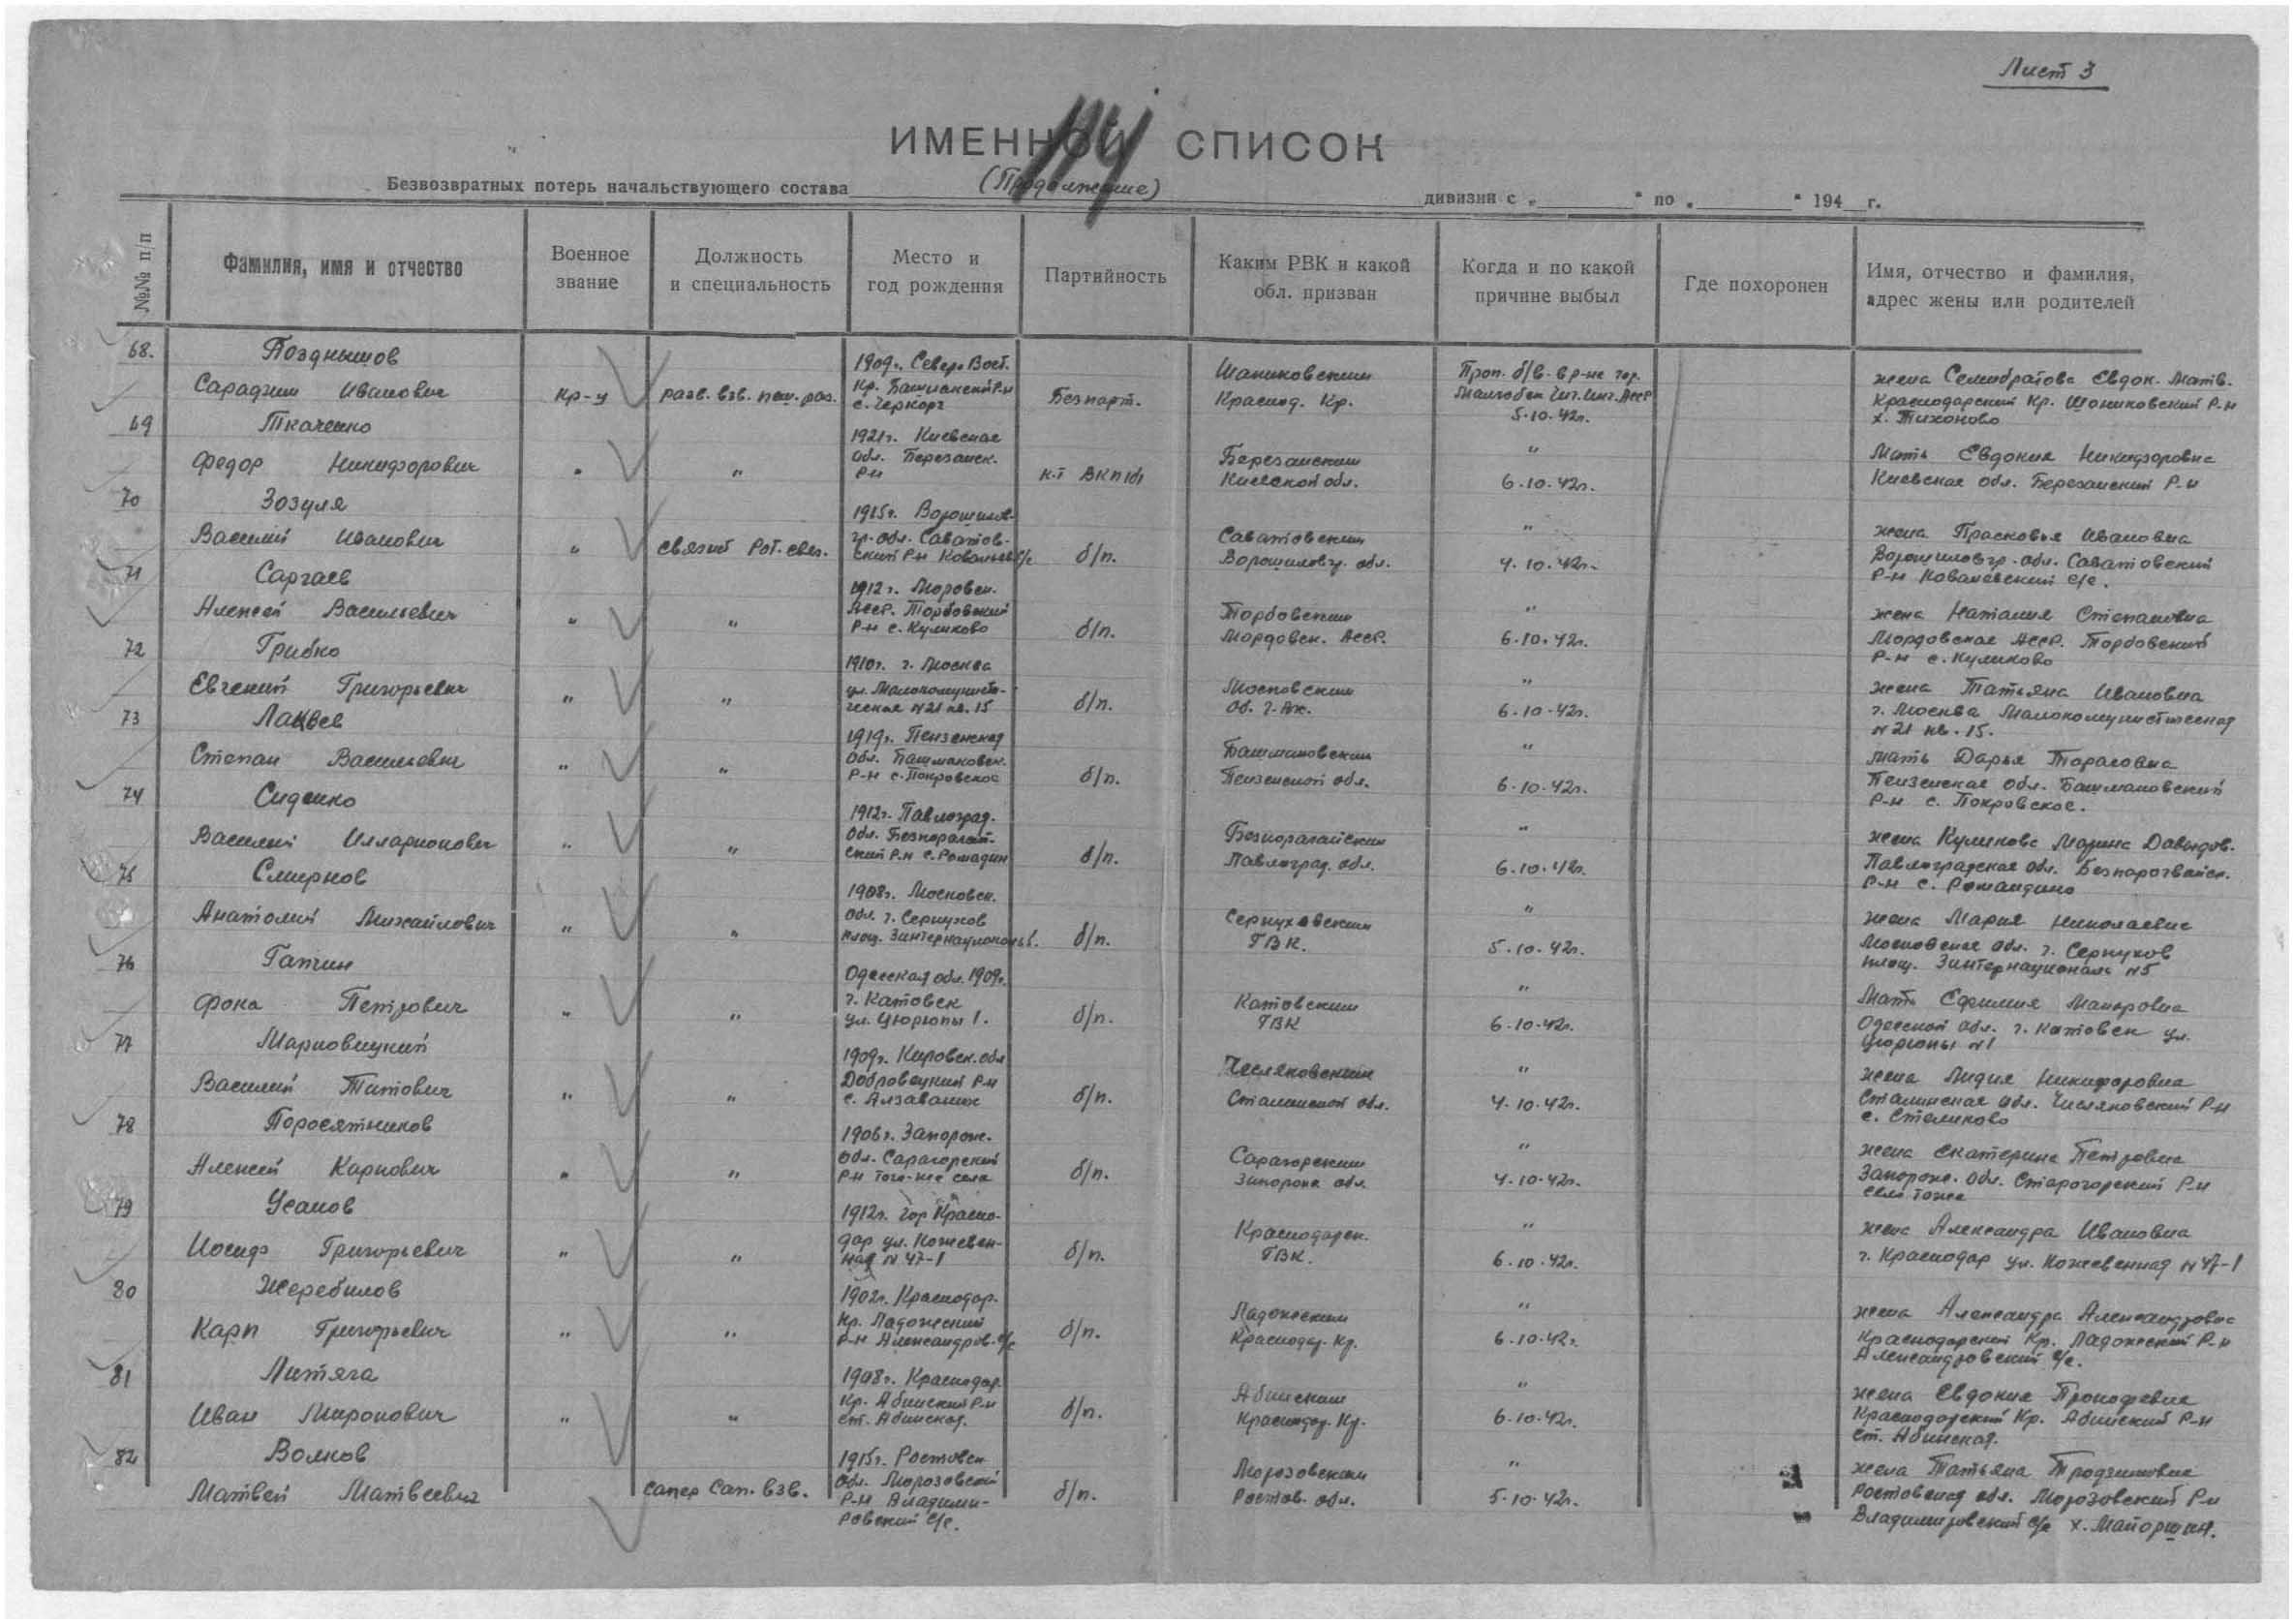 Лист 3
114
ИМЕННОЙ СПИСОК
Безвозвратных потерь начальствующего состава (Продолжение) дивизии с „ “ по „ “ 194 г.
№№ п/п
Фамилия, имя и отчество
Военное звание
Должность и специальность
Место и год рождения
Партийность
Каким РВК и какой обл. призван
Когда и по какой причине выбыл
Где похоронен
Имя, отчество и фамилия, адрес жены или родителей
68. Позднышов
Сараджин Иванович кр-ц разв. взв. пеш. раз. 1909г. Север. Вост. Кр. с. Черкорг Безпарт. Шаниковским Краснод. Кр. Проп. б/в. в р-не гор. Малгобек Чеч. Инг. Асср 5.10.42г. жена Семибратова Евдок. Матв.
Краснодарский Кр. Шаниковский Р-н
х. Тихоново
69 Ткаченко
Федор Никифорович " " 1921г. Киевская обл. Березанск. Р-н к.т ВКП(б) Березанским Киевской обл. " 6.10.42г. Мать Евдокия Никифоровна
Киевская обл. Березанский Р-н
70 Зозуля
Василий Иванович " связист Рот. связ. 1915г. Ворошилов-гр. обл. Саватов-ский Р-н Ковалевс с/с б/п. Саватовским Ворошиловг. обл. " 4.10.42г. жена Прасковья Ивановна
Ворошиловгр. обл. Саватовский
Р-н Ковалевский с/с.
71 Саргаев
Алексей Васильевич " " 1912г. Мордовск. Асср. Торбовский Р-н с. Куликово б/п. Торбовским Мордовск. Асср. " 6.10.42г. жена Наталия Степановна
Мордовская Асср. Торбовский
Р-н с. Куликово
72 Грибко
Евгений Григорьевич " " 1910г. г. Москва ул. Малокомунисти-ческая №21 кв. 15 б/п. Московским " 6.10.42г. жена Татьяна Ивановна
г. Москва Малокомунистическая
№21 кв. 15.
73
Степан Васильевич " " 1919г. Пензенская обл. Башмаковск. Р-н с. Покровское б/п. Башмаковским Пензенской обл. " 6.10.42г. мать Дарья Тарасовна
Пензенская обл. Башмаковский
Р-н с. Покровское.
74 Сиденко
Василий Илларионович " " 1912г. Павлоград. обл. с. Ромадин б/п. Павлоград. обл. " 6.10.42г. жена Куликова Марина Давыдов.
Павлоградская обл.
Р-н с. Романдино
75 Смирнов
Анатолий Михайлович " " 1908г. Московск. обл. г. Серпухов площ. 3интернационал 5. б/п. Серпуховским ГВК. " 5.10.42г. жена Мария Николаевна
Московская обл. г. Серпухов
площ. 3интернационала №5
76 Гапчин
Фока Петрович " " Одесская обл. 1909г. г. Катовск ул. Цюрюпы 1. б/п. Катовским ГВК " 6.10.42г. Мать Ефимия Макаровна
Одесской обл. г. Катовск ул.
Цюрюпы №1
77 Марковицкий
Василий Титович " " 1909г. Кировск. обл Добровецкий Р-н б/п. Чесляковским Сталинской обл. " 4.10.42г. жена Лидия Никифоровна
Сталинская обл. Числяковский Р-н
с. Стеликово
78 Поросятников
Алексей Карпович " " 1906г. Запорож. обл. Сарагорский Р-н того-же села б/п. Сарагорским Запорож обл. " 4.10.42г. жена Екатерина Петровна
Запорож. обл. Старогорский Р-н
село тоже
79 Усанов
Иосиф Григорьевич " " 1912г. гор Красно-дар ул. Кожевен-ная №47-1 б/п. Краснодарск. ГВК. " 6.10.42г. жена Александра Ивановна
г. Краснодар ул. Кожевенная №47-1
80 Жеребилов
Карп Григорьевич " " 1902г. Краснодар. Кр. Ладожский Р-н Александров. с/с б/п. Ладожским Краснодар. Кр. " 6.10.42г. жена Александра Александровна
Краснодарский Кр. Ладожский Р-н
Александровский с/с.
81 Литяга
Иван Миронович " " 1908г. Краснодар. Кр. Абинский Р-н ст. Абинская. б/п. Абинским Краснодар. Кр. " 6.10.42г. жена Евдокия Прокофевна
Краснодарский Кр. Абинский Р-н
ст. Абинская.
82 Волков
Матвей Матвеевич сапер Сап. взв. 1915г. Ростовск обл. Морозовский Р-н Владими-ровский с/с. б/п. Морозовским Ростов. обл. " 5.10.42г. жена Татьяна
Ростовская обл. Морозовский Р-н
Владимировский с/с х. Майоршин.